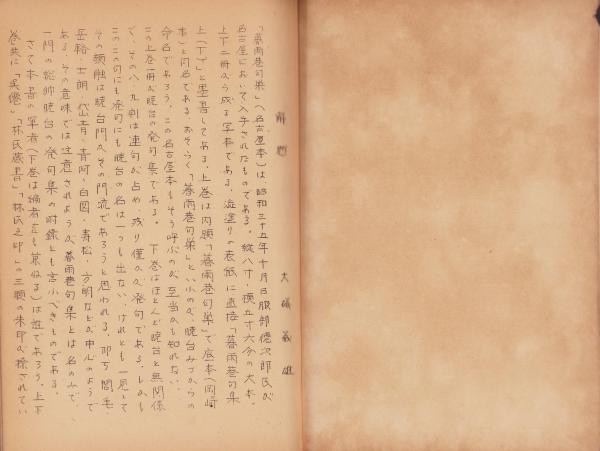 解題
大礒義雄
「暮雨巷句巣」(名古屋本)は昭和三十五年十月日服部徳次郎氏が
名古屋において入手されたものである。縦八寸・横五寸六分の大本、
上下二冊から成る写本である。渋塗りの表紙に直接「暮雨巷句集
上(下)」と墨書してある。上巻は内題「暮雨巷句巣」で底本(岡崎
本)と同名である。おそらく「暮雨巷句巣」といふのが、暁台みづからの
命名であろう。この名古屋本もそう呼ぶのが至当かも知れない。
この上巻一冊が暁台の発句集である。 下巻はほとんど暁台と無関係
で、その八、九割は連句が占め、残り僅かが発句である。しかも
この二句にも発句にも暁台の名は一つも出ない。けれども一見して
その顔触は暁台門かその門流であろうと思われる。即ち 閭毛・
岳輅・士朗・岱青・青阿・白図・寿松・方明などが中心のようで
ある。その意味では注意されようが、暮雨巷句集とは名のみで、
一門の総帥暁台の発句集の附録とも言ふべきものである。
さて本書の筆者(下巻は編者をも兼ねる)は誰であろう。上下
巻共に「呉僊」「林氏蔵書」「林氏之印」の三顆の朱印が捺されてい